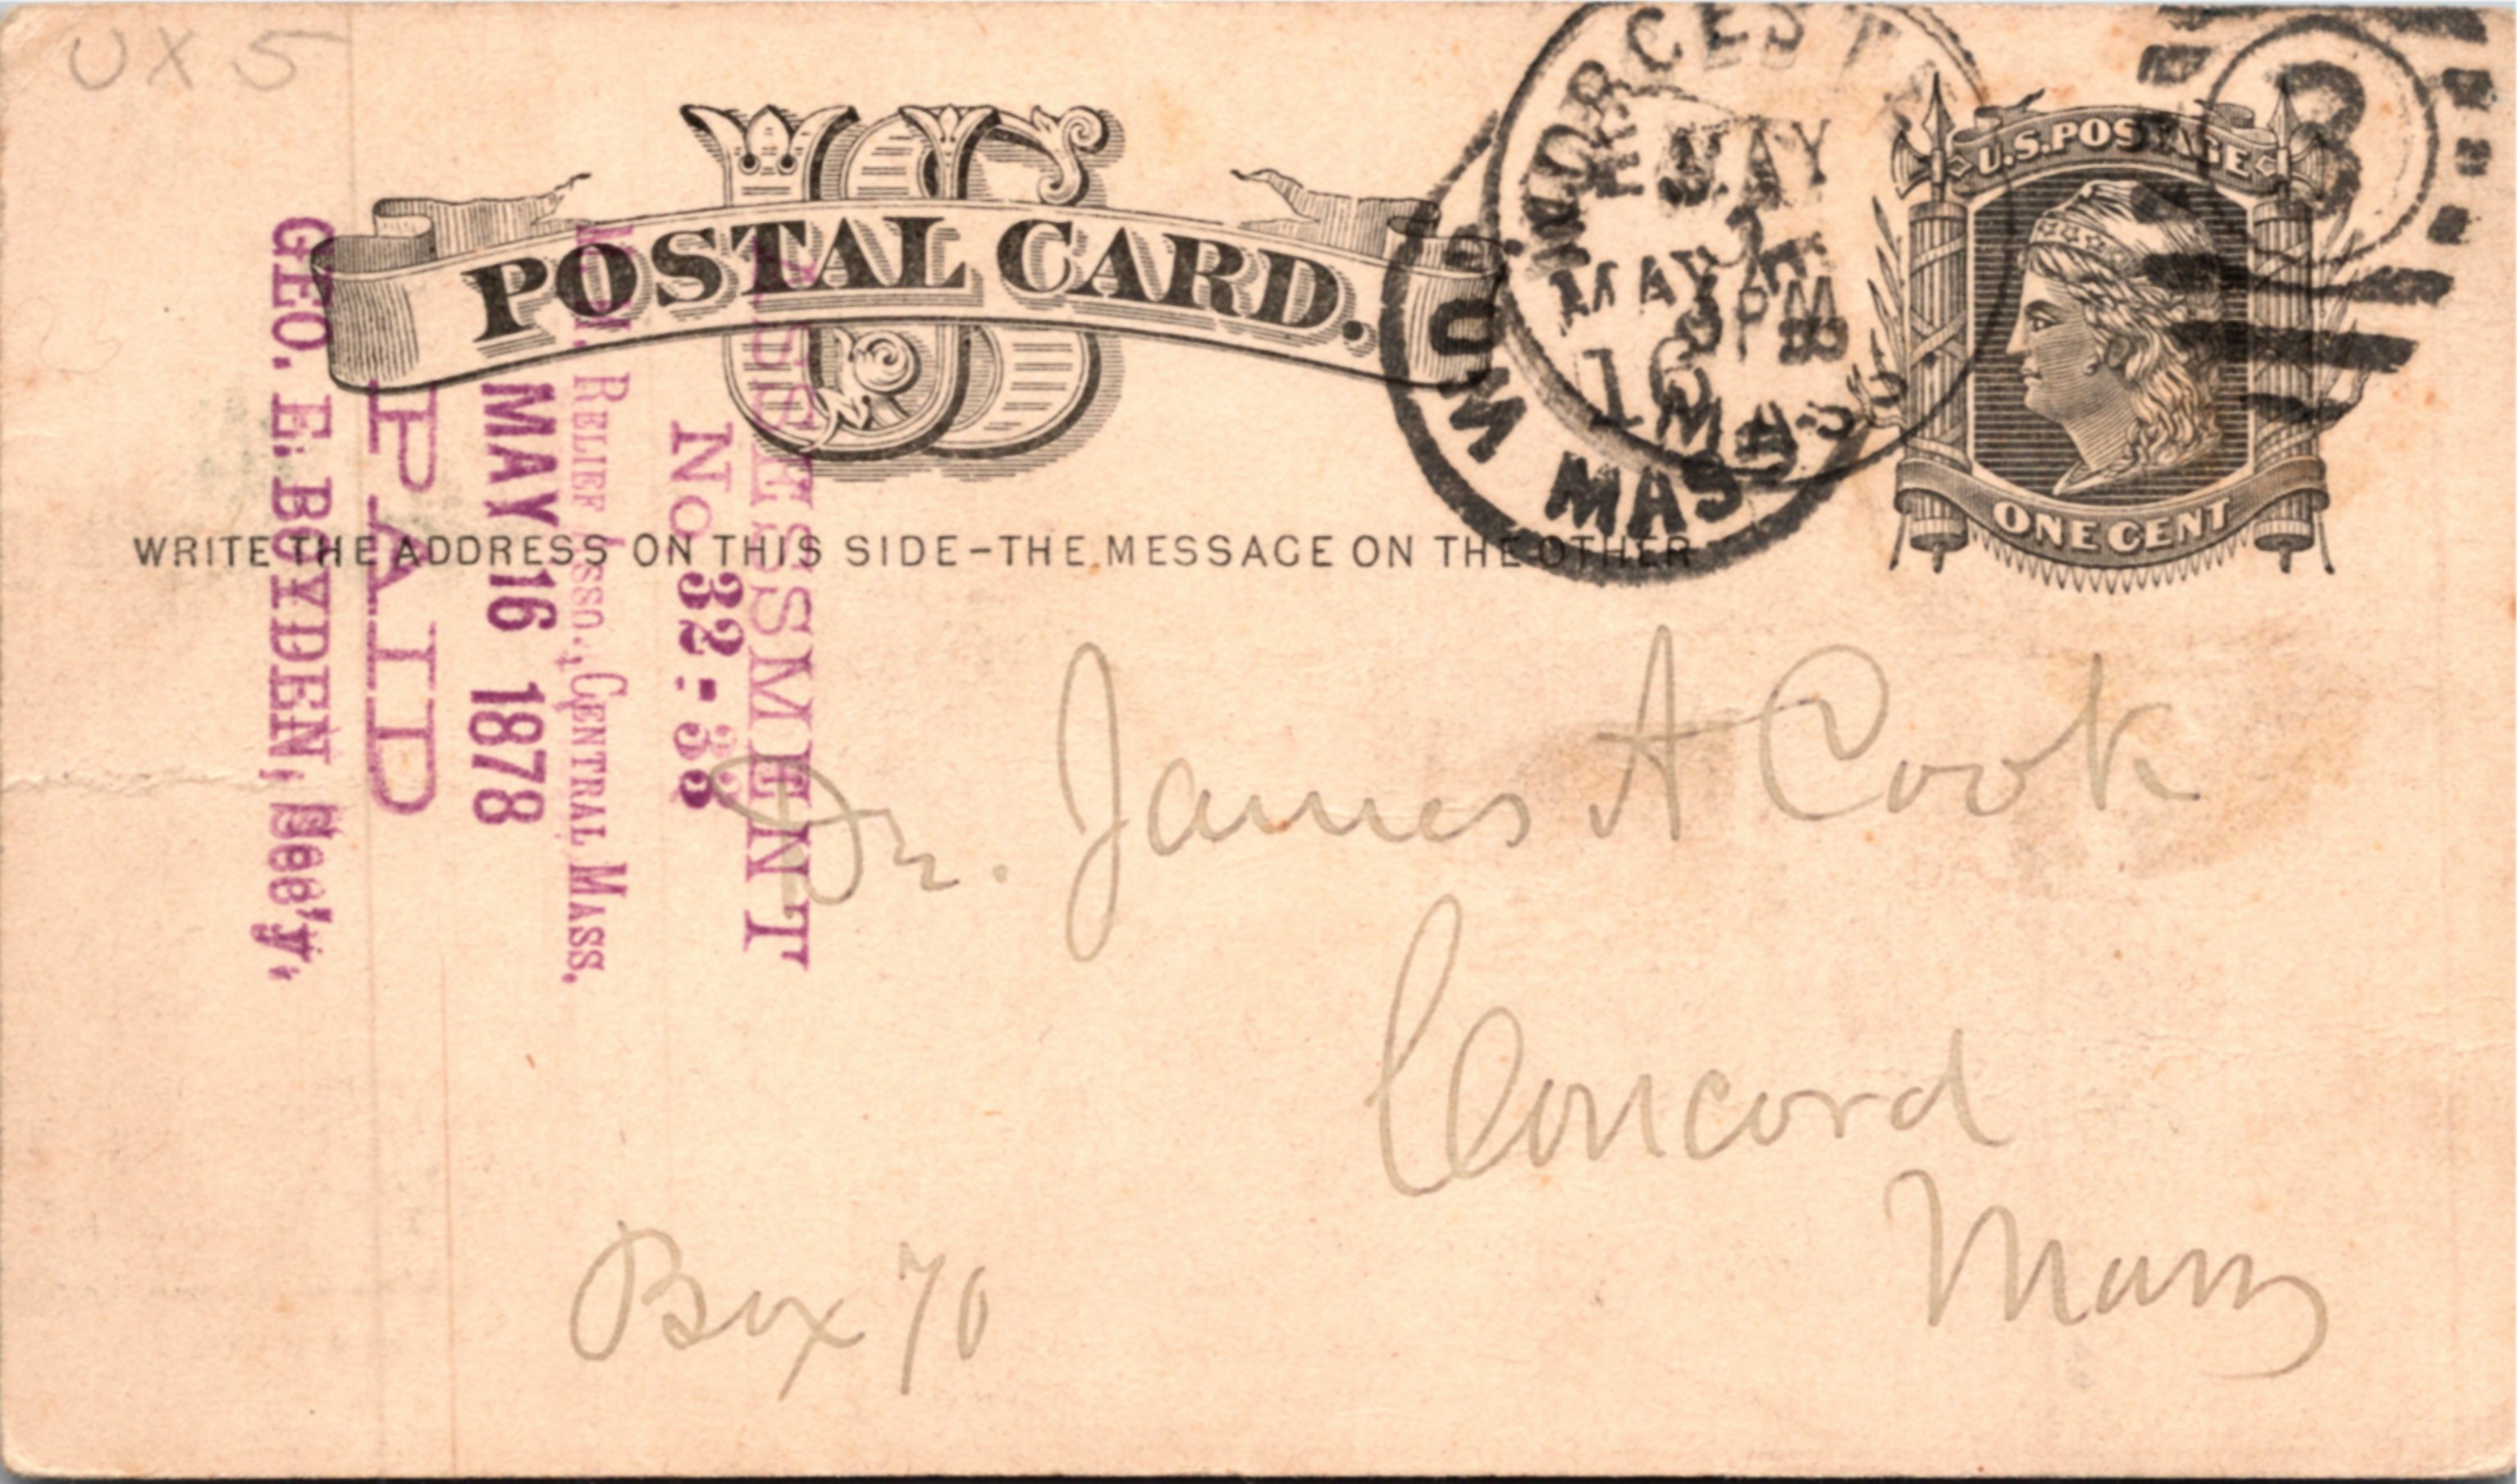 UX5
US
POSTAL CARD.
U.S. POSTAGE
ONE CENT
WRITE THE ADDRESS ON THIS SIDE-THE MESSAGE ON THE OTHER
WORCESTER
MAY
MASS
MAY
16
MASS
8
ASSESSMENT
No 32-38
RELIEF ASSO., CENTRAL MASS,
MAY 16 1878
PAID
GEO. E. BOYDEN, Sec'y,
Dr. James A Cook
Concord
Mass
Box 70